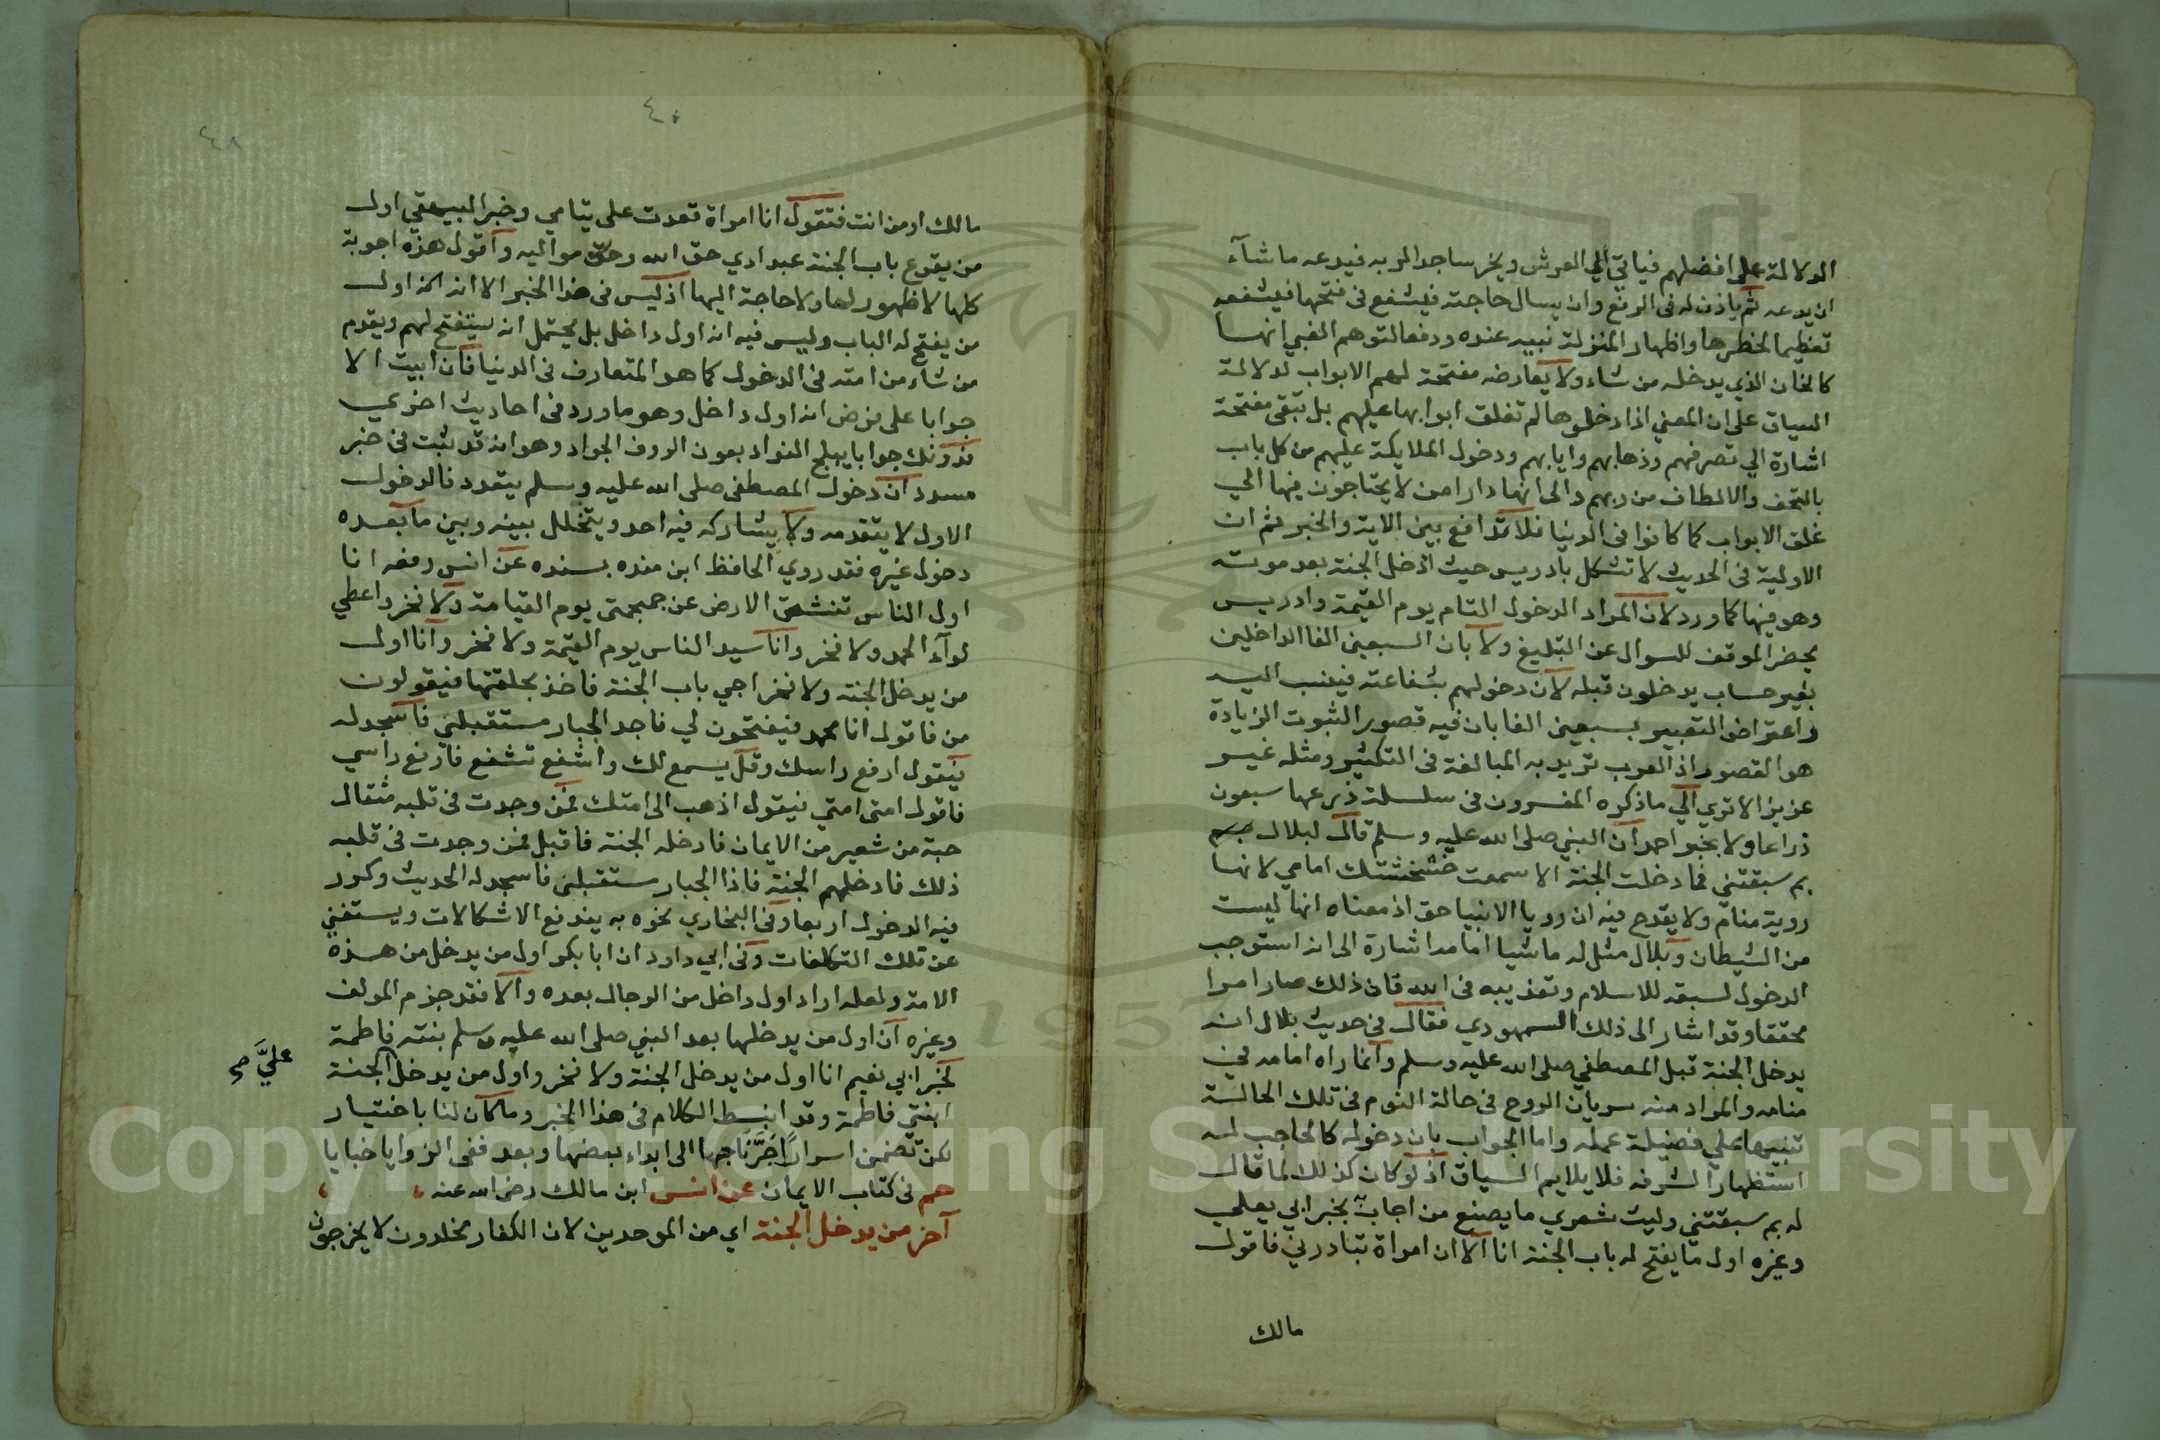 الدلالة على افضلهم فياتي الي العرش ويخر ساجدا لربه فيدعه ما شآء
ان يدعه ثم ياذن له فى الرفع وان يسال حاجته فيشفع فى فتحها فيشفعه
تعظيما لخطرها واظهار المنزلة نبيه عنده ودفعا لتوهم الغبي انها
كالخان الذي يدخله من شاء ولا يعارضه مفتحة لهم الابواب لدلالة
السياق على ان المعني اذا دخلوها لم تغلق ابوابها عليهم بل تبقى مفتحة
اشارة الي تصرفهم وذهابهم وايابهم ودخول الملايكة عليهم من كل باب
بالتحف والالطاف من ربهم والى انها دار امن لا يحتاجون فيها الي
غلق الابواب كما كانوا فى الدنيا فلا تدافع بين الاية والخبر ثم ان
الاولية فى الحديث لا تشكل بادريس حيث ادخل الجنة بعد موته
وهو فيها كما ورد لان المراد الدخول التام يوم القيمة وادريس
يحضر الموقف للسوال عن التبليغ ولا بان السبعين الفا الداخلين
بغير حساب يدخلون قبله لان دخولهم بشفاعته فينسب اليه
واعتراض التعبير بسبعين الفا بان فيه قصور الثبوت الزيادة
هو القصور اذ العرب تريد به المبالغة فى التكثير ومثله غير
عزيز الا تري الي ما ذكره المفسرون فى سلسلة ذرعها سبعون
ذراعا ولا بخبر احمد ان النبي صلى الله عليه وسلم قال لبلال
بم سبقتني فما دخلت الجنة الا سمعت خشخشتك امامي لانها
روية منام ولا يقدح فيه ان رويا الانبيا حق اذ معناه انها ليست
من الشيطان وبلال مثل له ماشيا امامه اشارة الى انه استوجب
الدخول لسبقه للاسلام وتعذيبه فى الله فان ذلك صار امرا
محققا وقد اشار الى ذلك السمهودي فقال في حديث بلال انه
يدخل الجنة قبل المصطفي صلى الله عليه وسلم وانما راه امامه في
منامه والمراد منه سريان الروح فى حالة النوم فى تلك الحالة
تنبيها على فضيلة عمله واما الجواب بان دخوله كالحاجب له
استظهارا لشرفه فلا يلايم السياق اذ لو كان كذلك لما قال
له بم سبقتني وليت شعري ما يصنع من اجاب بخبر ابي يعلي
وغيره اول ما يفتح له باب الجنة انا الا ان امراة تبادرني فاقول
مالك
٤٠
مالك او من انت فتقول انا امراة قعدت على يتامي وخبر البيهقي اول
من يقرع باب الجنة عبد ادي حق الله وحق مواليه واقول هذه اجوبة
كلها لا ظهور لها ولا حاجة اليها اذ ليس فى هذا الخبر الا انه اول
من يفتح له الباب وليس فيه انه اول داخل بل يحتمل انه يستفتح لهم ويقدم
من شاء من امته فى الدخول كما هو المتعارف فى الدنيا فان ابيت الا
جوابا على فرض انه اول داخل وهو ما ورد فى احاديث اخري
فدونك جوابا يبلج الفواد بعون الروف الجواد وهو انه قد ثبت فى خبر
مسدد ان دخول المصطفي صلى الله عليه وسلم يتعدد فالدخول
الاول لا يتقدمه ولا يشاركه فيه احد ويتخلل بينه وبين ما بعده
دخول غيره فقد روي الحافظ ابن منده بسنده عن انس رفعه انا
اول الناس تنشق الارض عن جمجمتى يوم القيامة ولا فخر واعطي
لوآء الحمد ولا فخر وانا سيد الناس يوم القيمة ولا فخر وانا اول
من يدخل الجنة ولا فخر اجي باب الجنة فاخذ بحلقتها فيقولون
من فاقول انا محمد فيفتحون لي فاجد الجبار مستقبلني فاسجد له
فيقول ارفع راسك وقل يسمع لك واشفع تشفع فارفع راسي
فاقول امتى امتي فيقول اذهب الى امتك فمن وجدت فى قلبه مثقال
حبة من شعير من الايمان فادخله الجنة فاقبل فمن وجدت فى قلبه
ذلك فادخلهم الجنة فاذا الجبار مستقبلني فاسجد له الحديث وكرر
فيه الدخول اربعا وفى البخاري نحوه به يندفع الاشكالات ويستغني
عن تلك التكلفات وفى ابي داود ان ابا بكر اول من يدخل من هذه
الامة ولعله اراد اول داخل من الرجال بعده والا فقد جزم المولف
وغيره ان اول من يدخلها بعد النبي صلى الله عليه وسلم بنته فاطمة
لخبر ابي نعيم انا اول من يدخل الجنة ولا فخر واول من يدخل الجنة
عليَّ صح
ابنتي فاطمة وقد انبسط الكلام فى هذا الخبر وما كان لنا باختيار
لكن تضمن اسرارا جرنا جها الى ابداء بعضها وبعد ففى الزوايا خبايا
هم فى كتاب الايمان عن انس ابن مالك رضى الله عنه
آخر من يدخل الجنة اي من الموحدين لان الكفار مخلدون لا يخرجون
Copyright © King Saud University
1957